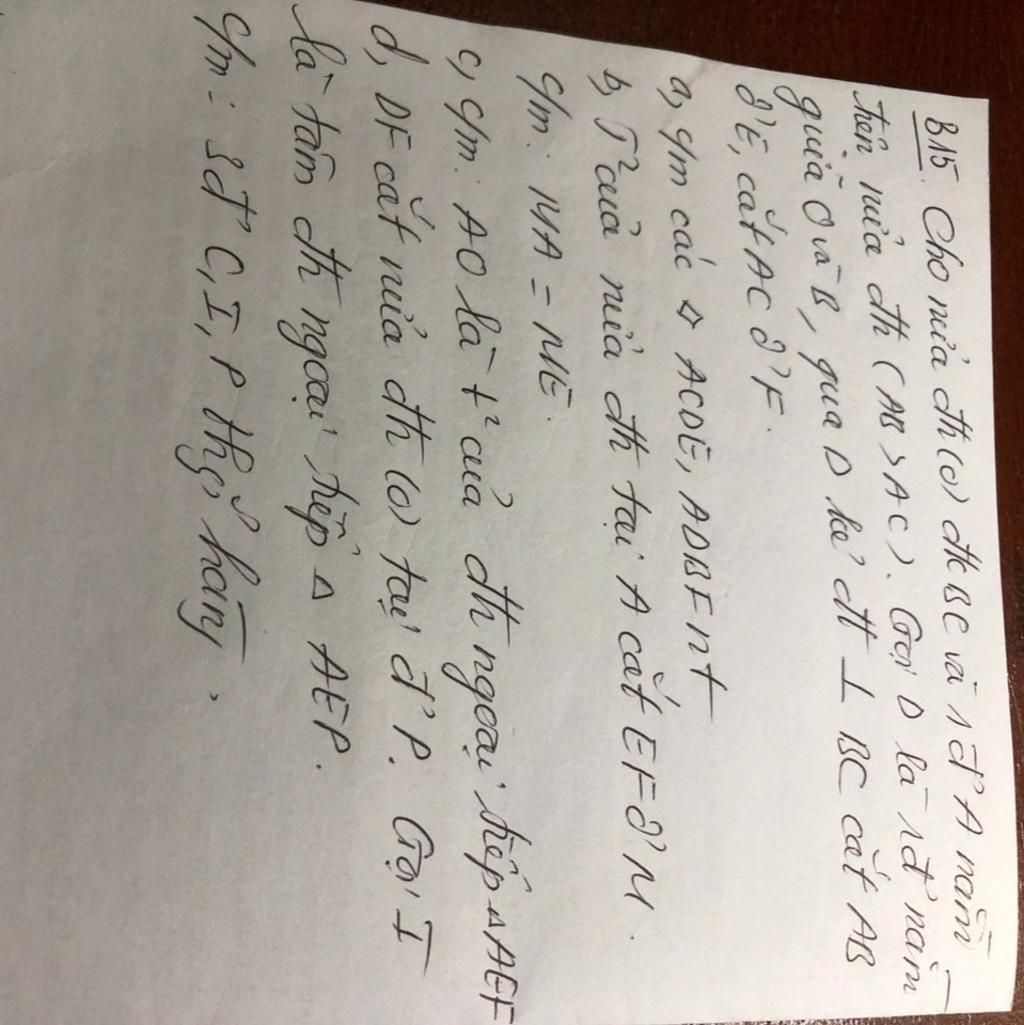 B15. Cho nửa đtr (O) đk BC và 1 đ' A nằm
trên nửa đtr (AB > AC). Gọi D là 1 đ' nằm
giữa O và B, qua D kẻ đt ⊥ BC cắt AB
ở E, cắt AC ở F.
a, c/m các ◊ ACDE, ADBF nt
b, T² của nửa đtr tại A cắt EF ở M.
c/m: MA = ME.
c, c/m: AO là t² của đtr ngoại tiếp Δ AEF
d, DF cắt nửa đtr (O) tại đ' P. Gọi I
là tâm đtr ngoại tiếp Δ AEP.
c/m: 3 đ' C, I, P thẳng hàng.